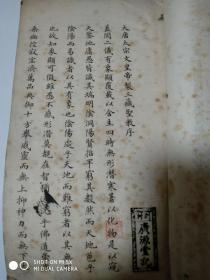 大唐太宗文皇帝製三藏聖教序
蓋聞二儀有象顯覆載以含生四時無形潛寒暑以化物是以窺
天鑒地庸愚皆識其端明陰洞陽賢哲罕窮其數然而天地苞乎
陰陽而易識者以其有象也陰陽處乎天地而難窮者以其
也故知象顯可徵雖愚不惑形潛莫覩在智猶乎佛道
乘幽控寂弘濟萬品典御十方舉威靈而無上抑神力而無
廣源